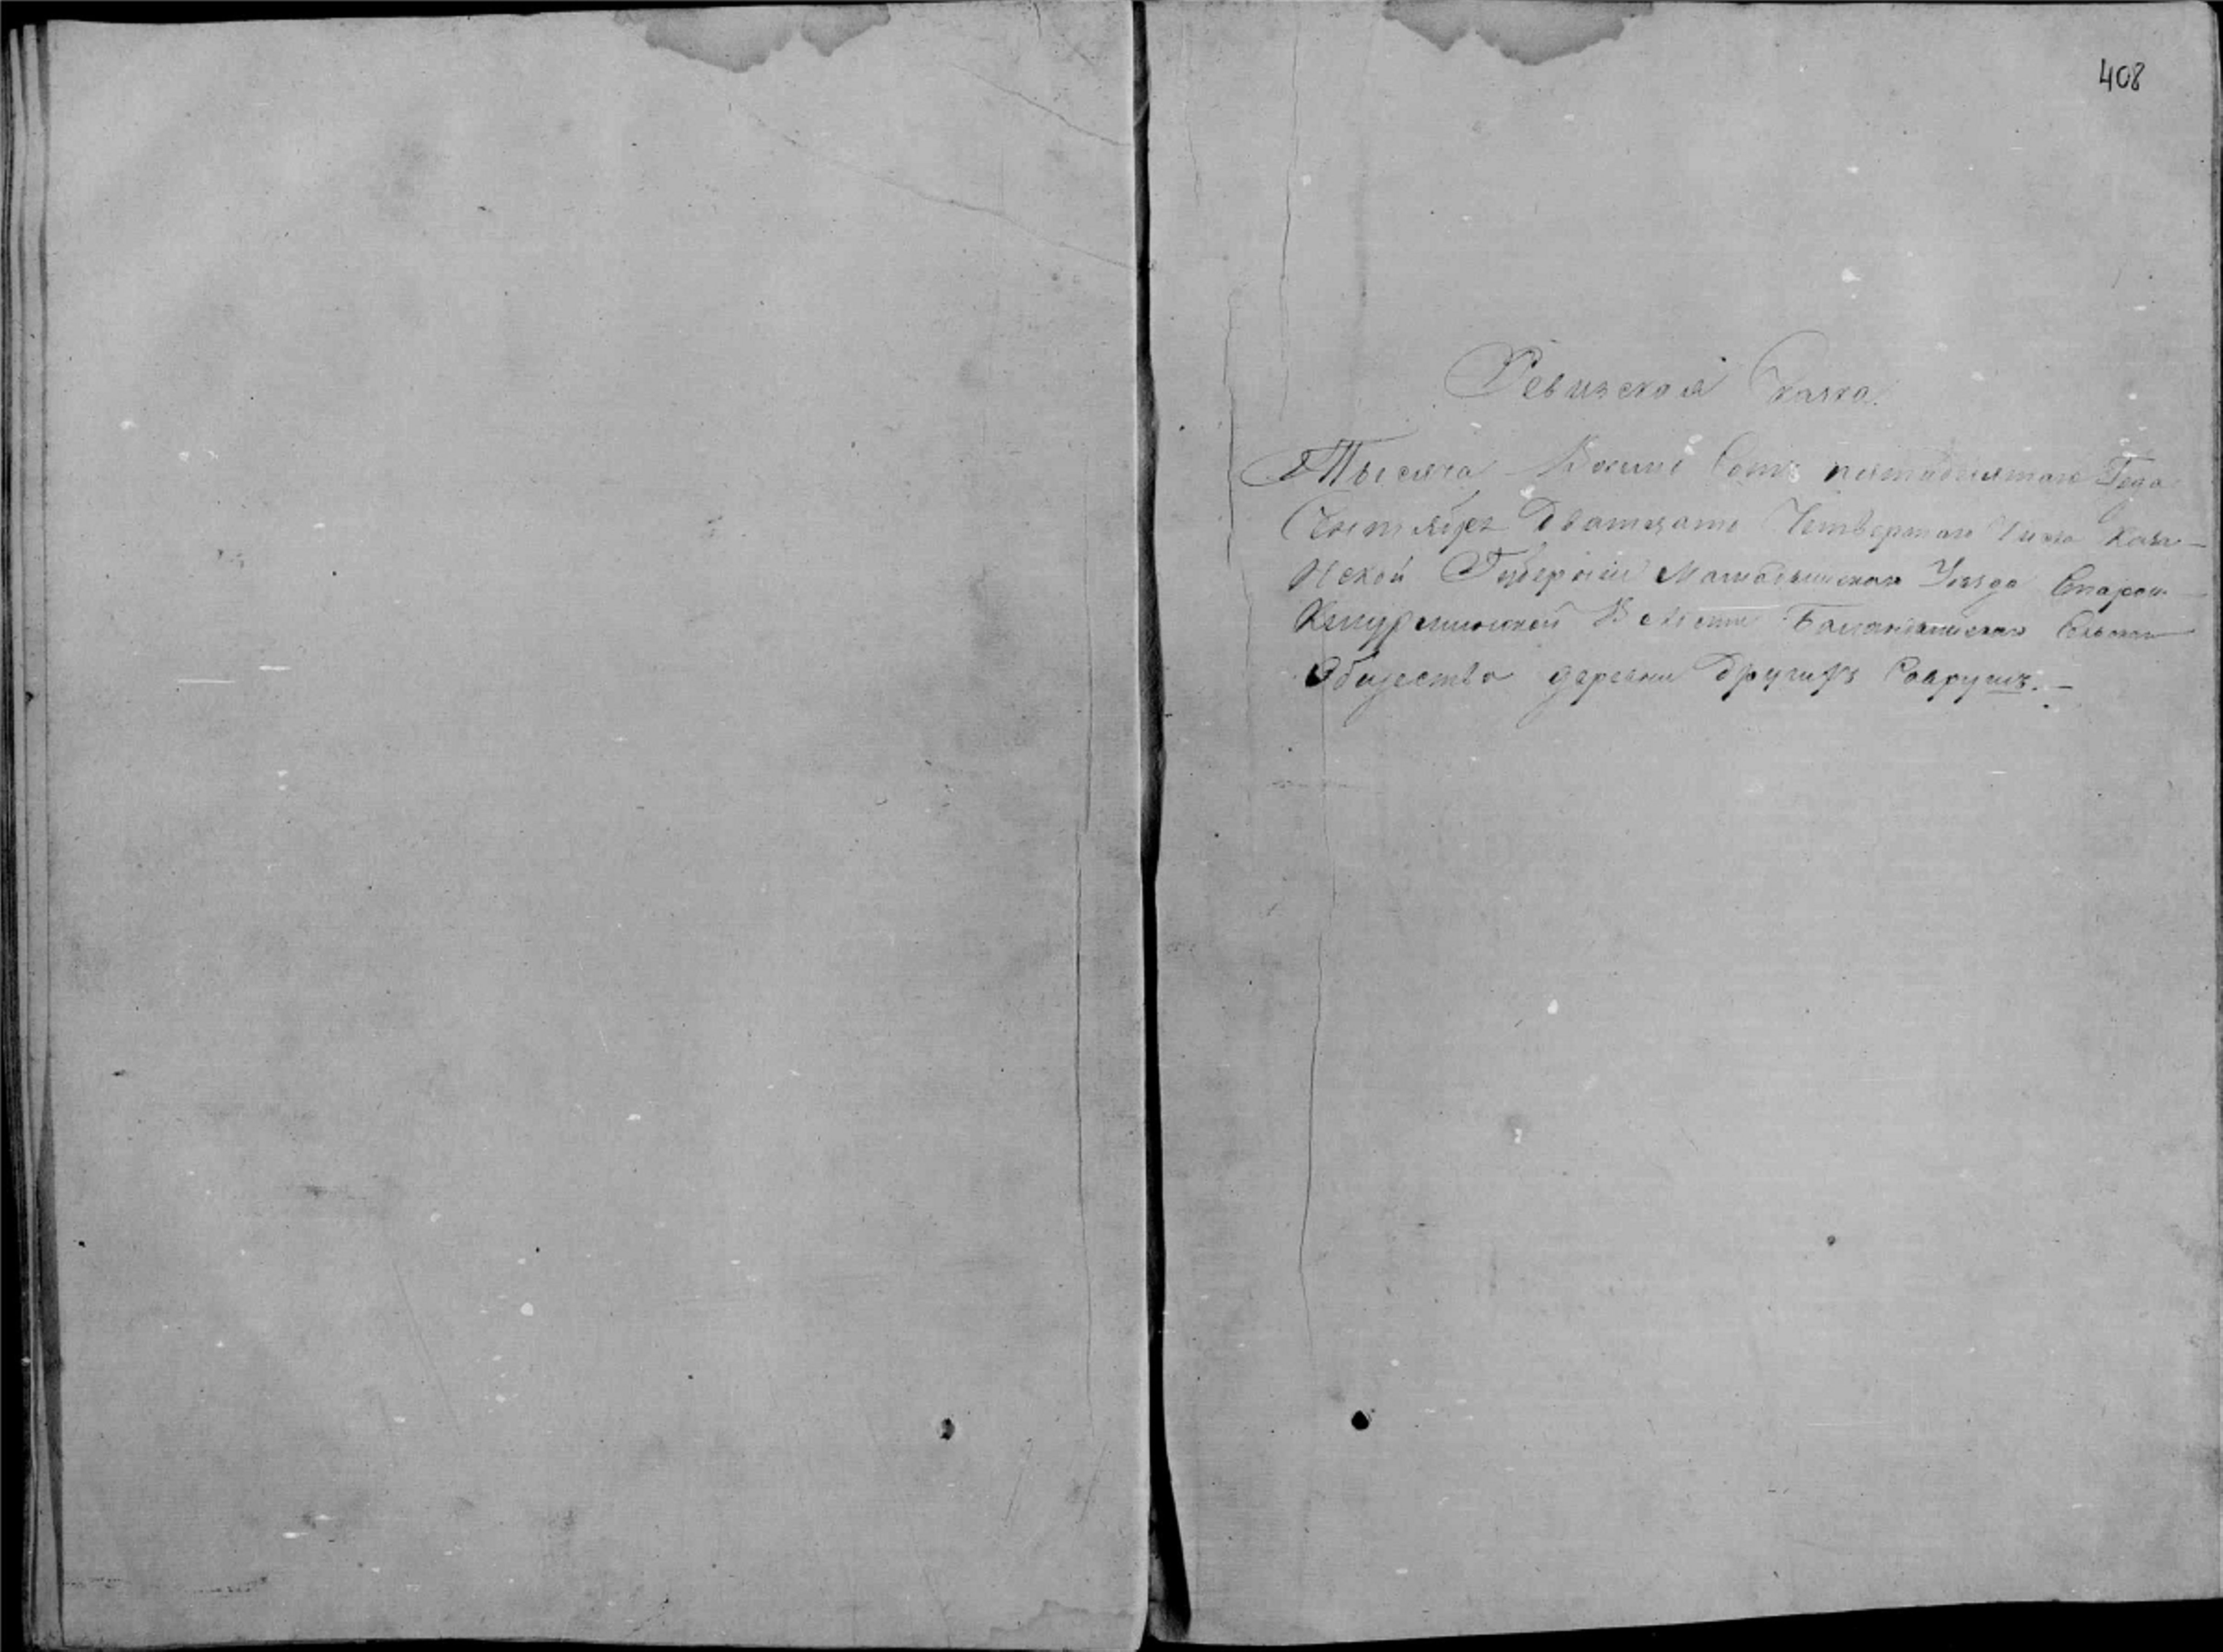 408
Ревизская Сказка.
Тысяча Восемь Сотъ пятидесятаго Года
Октября Дватцать Четвертаго Числа Каза-
нской Губерніи Мамадышского Уезда Старой
Волости Сельскаго
Общества деревни Другихъ Саврушъ.-